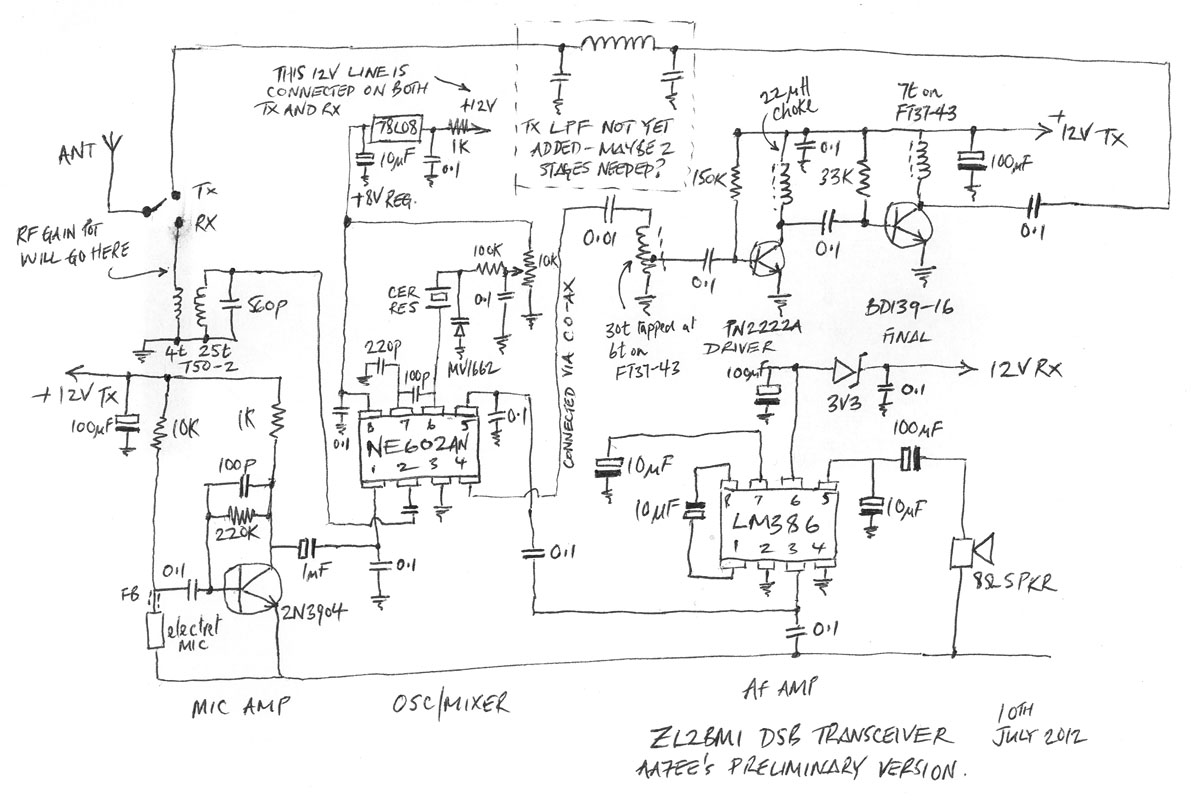 THIS 12V LINE IS
CONNECTED ON BOTH
TX AND RX
+12V
78L08
1K
10µF
0.1
+8V REG.
TX LPF NOT YET
ADDED - MAYBE 2
STAGES NEEDED?
22µH
CHOKE
7t on
FT37-43
+
12V TX
0.1
100µF
150K
33K
ANT
Tx
RX
RF GAIN POT
WILL GO HERE
0.01
0.1
0.1
0.1
560p
4t 25t
T50-2
CER
RES
100K
10K
0.1
MV1662
220p
100p
CONNECTED VIA CO-AX
30t tapped at
6t on
FT37-43
PN2222A
DRIVER
BD139-16
FINAL
+12V Tx
100µF
10K
1K
0.1
8 7 6 5
NE602AN
1 2 3 4
0.1
100µF
3V3
0.1
12V Rx
100p
220K
10µF
10µF
8 7 6 5
LM386
1 2 3 4
100µF
10µF
8Ω SPKR
0.1
FB
electret
MIC
2N3904
1µF
0.1
0.1
0.1
MIC AMP
OSC/MIXER
AF AMP
ZL2BMI DSB TRANSCEIVER
AA7EE's PRELIMINARY VERSION.
10TH
JULY 2012